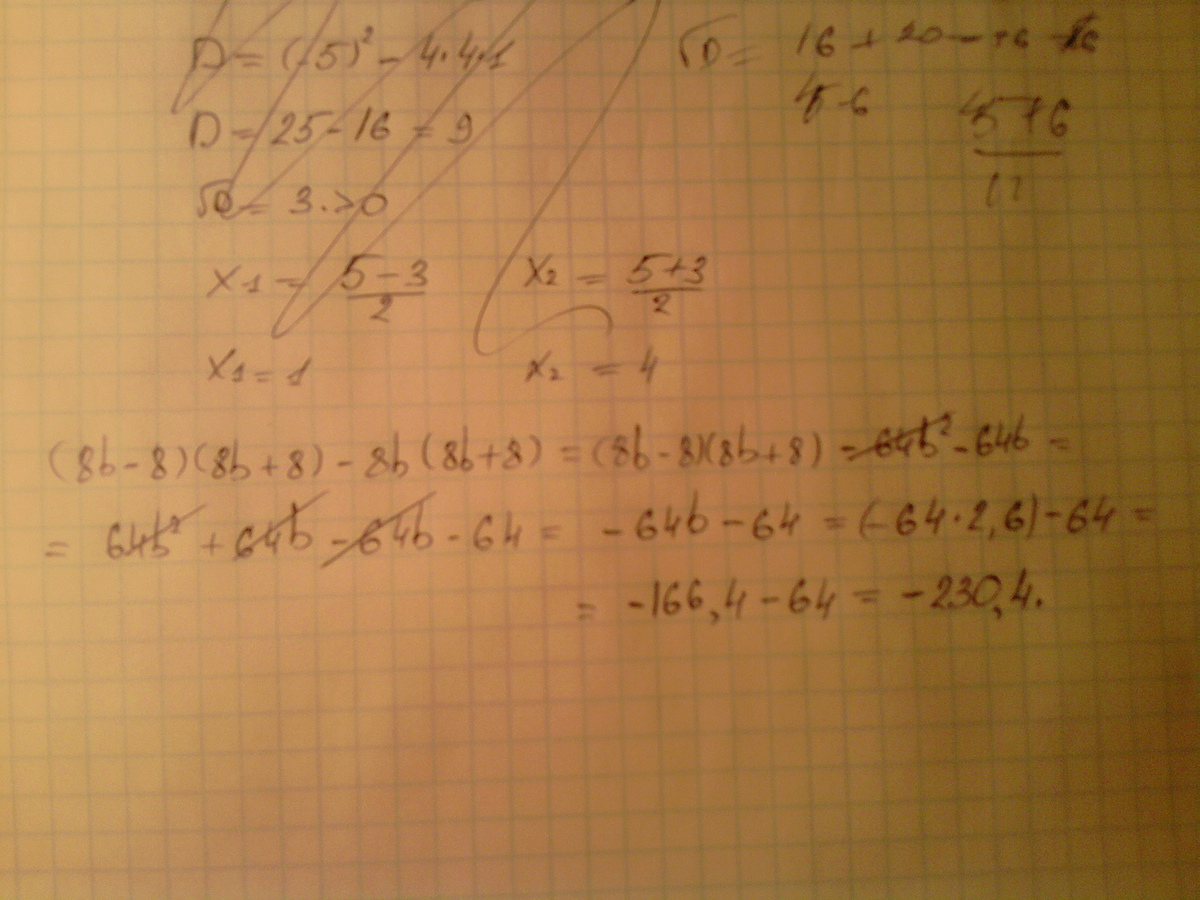 D = (-5)² - 4·4·1
√D = 16 + 20
D = 25 - 16 = 9
√D = 3 > 0
5 + 6
x1 = (5-3)/2 x2 = (5+3)/2
x1 = 1 x2 = 4
(8b-8)(8b+8) - 8b(8b+8) = (8b-8)(8b+8) - 64b² - 64b =
= 64b² + 64b - 64b - 64 = -64b - 64 = (-64·2,6) - 64 =
= -166,4 - 64 = -230,4.